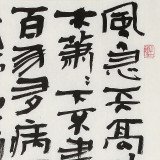 風急天高
木蕭〻下不盡
百年多病